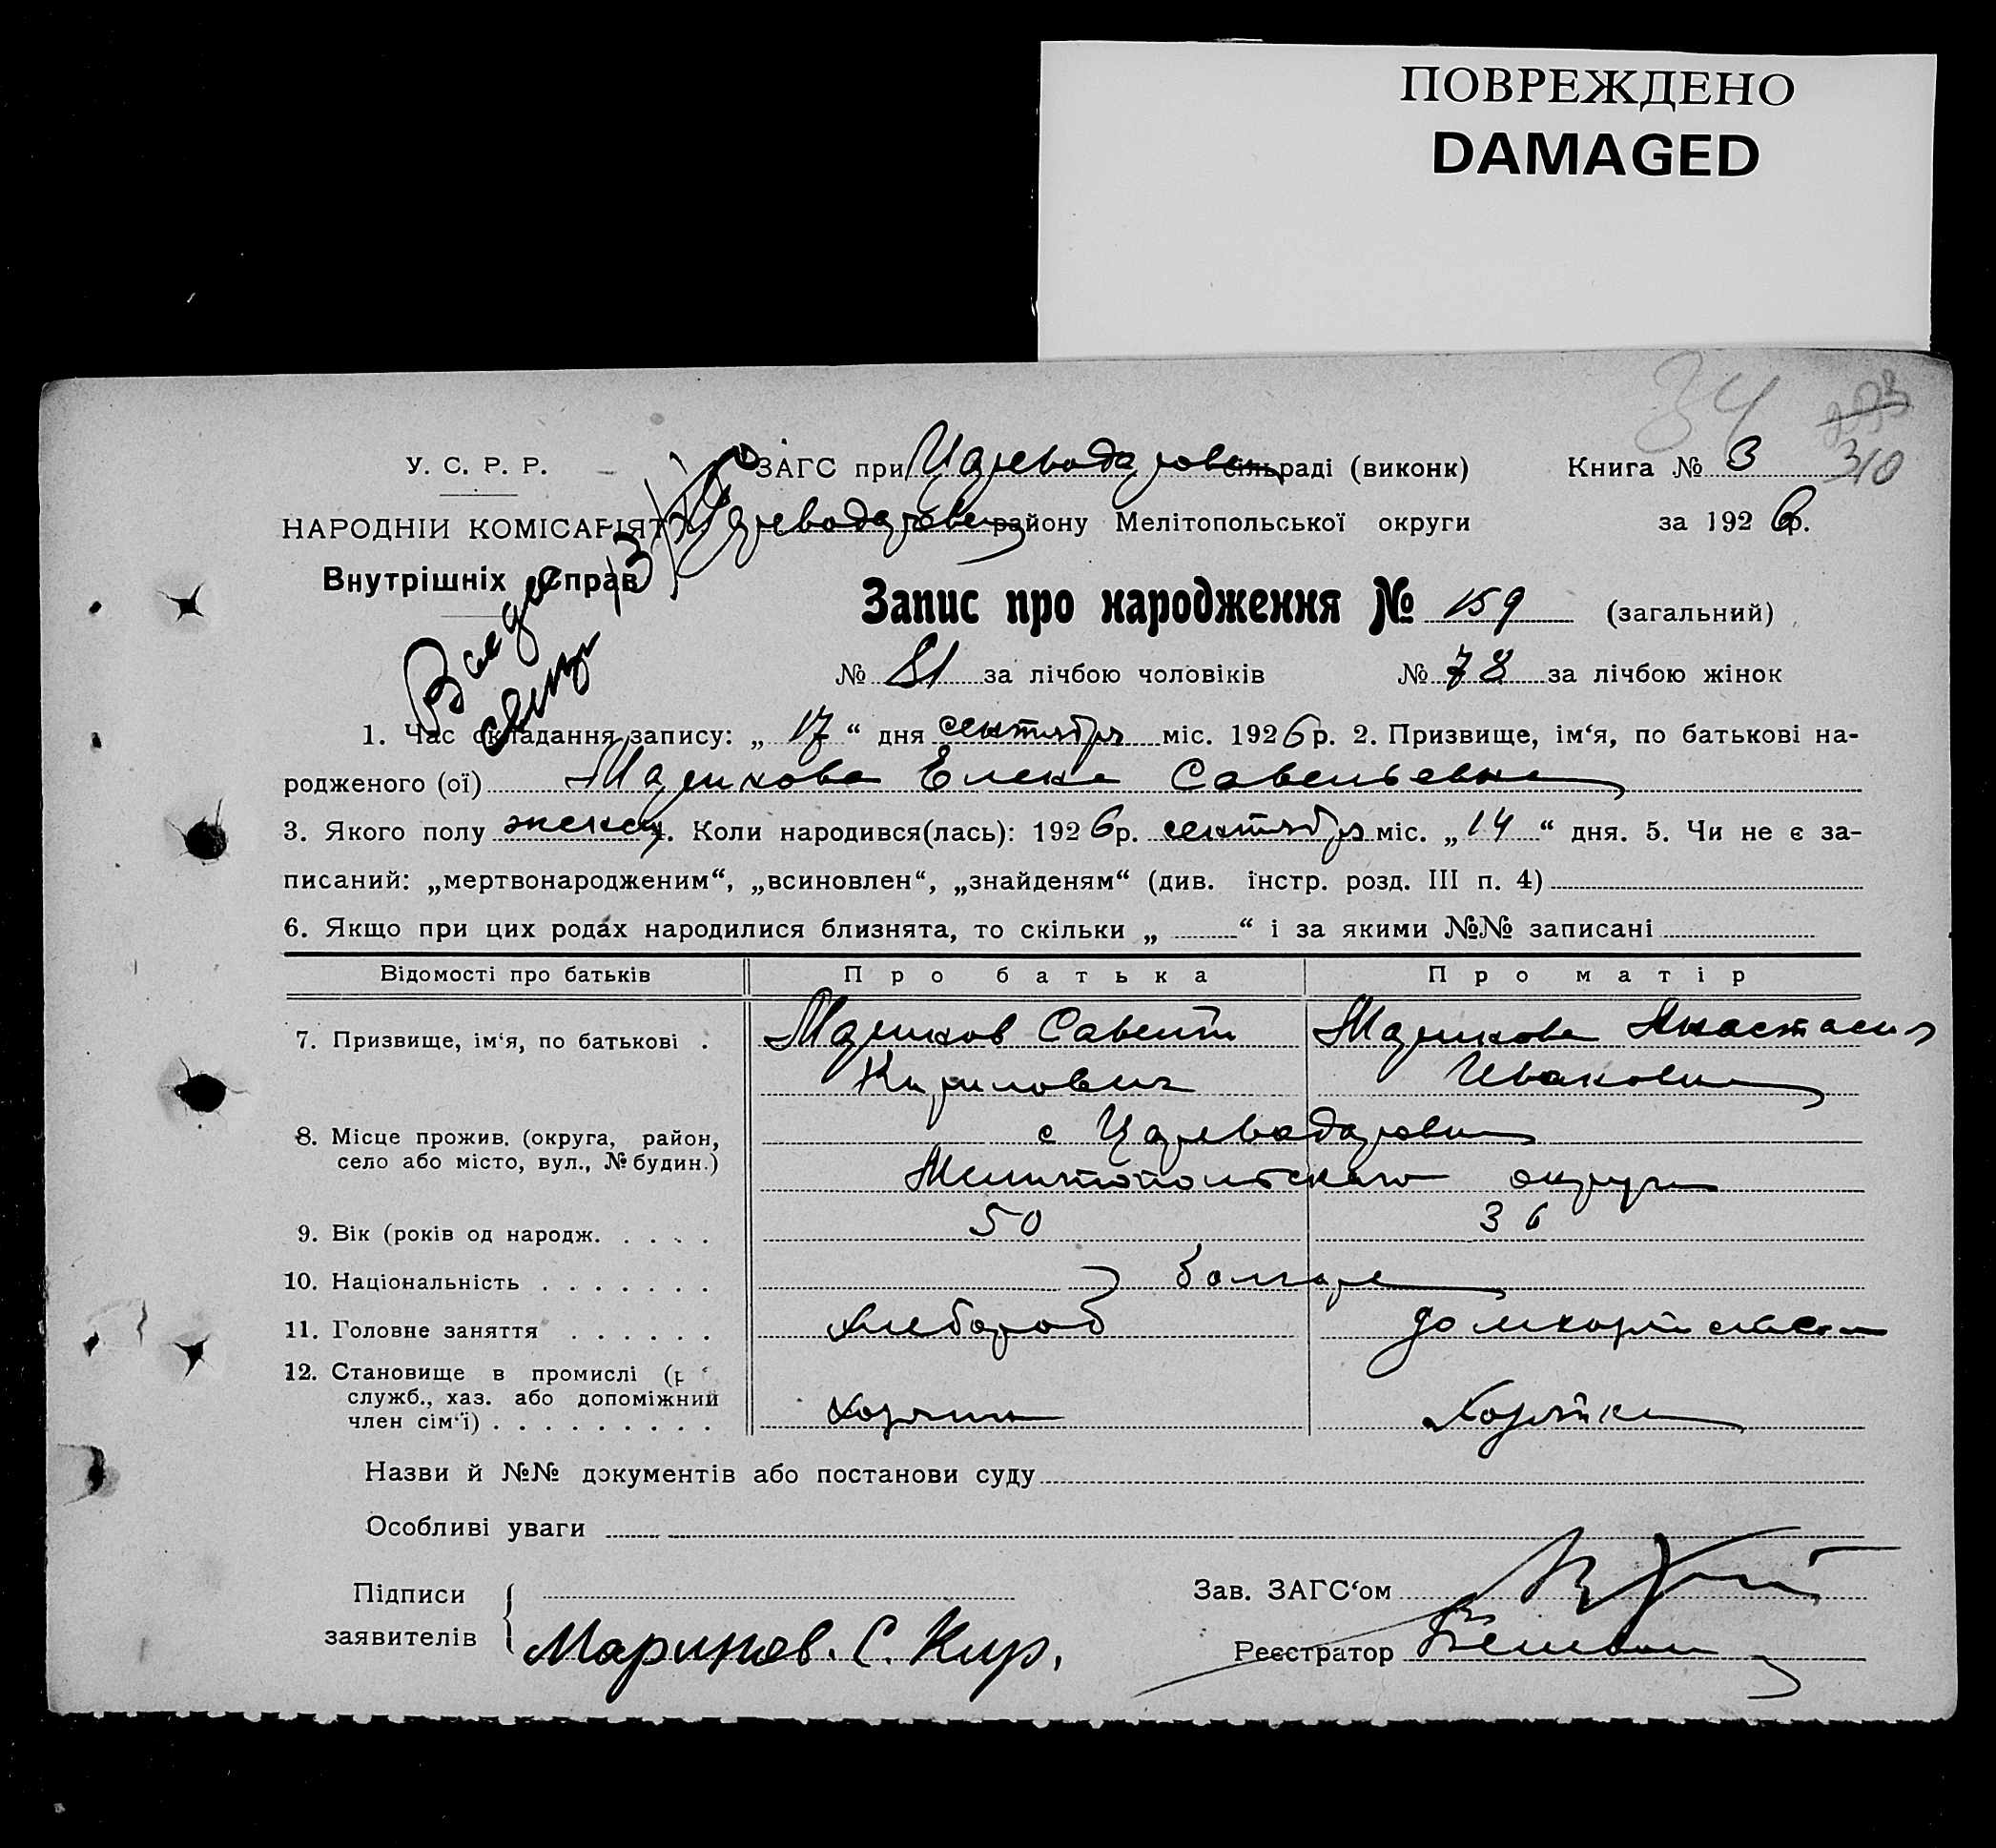 ПОВРЕЖДЕНО
DAMAGED
34
310
У. С. Р. Р.
ЗАГС при Цареводаровск сільраді (виконк)
Книга № 3
НАРОДНІЙ КОМІСАРІЯТ
Цареводаровск району Мелітопольської округи
за 1926 р.
Внутрішніх Справ
Запис про народження № 159 (загальний)
№ 81 за лічбою чоловіків № 78 за лічбою жінок
1. Час складання запису: „ 17 “ дня сентября міс. 1926 р. 2. Призвище, ім‘я, по батькові на-
родженого (ої) Маринова Елена Савельевна
3. Якого полу женск 4. Коли народився(лась): 1926 р. сентября міс. „ 14 “ дня. 5. Чи не є за-
писаний: „мертвонародженим“, „всиновлен“, „знайденям“ (див. інстр. розд. III п. 4)
6. Якщо при цих родах народилися близнята, то скільки „ “ і за якими №№ записані
Відомості про батьків Про батька Про матір
7. Призвище, ім‘я, по батькові . Маринов Савелий Маринова Анастасия
Кирилович Ивановна
8. Місце прожив. (округа, район, с Цареводаровка
село або місто, вул., № будин.) Мелитопольского округа
9. Вік (років од народж. . . . . 50 36
10. Національність . . . . . . . болгаре
11. Головне заняття . . . . . . хлебороб домхозяйка
12. Становище в промислі (р
служб., хаз. або допоміжний
член сім‘ї) . . . . . . . . . хозяин хозяйка
Назви й №№ документів або постанови суду
Особливі уваги
Підписи
Зав. ЗАГС‘ом
заявителів Маринов. С. Кир.
Реєстратор